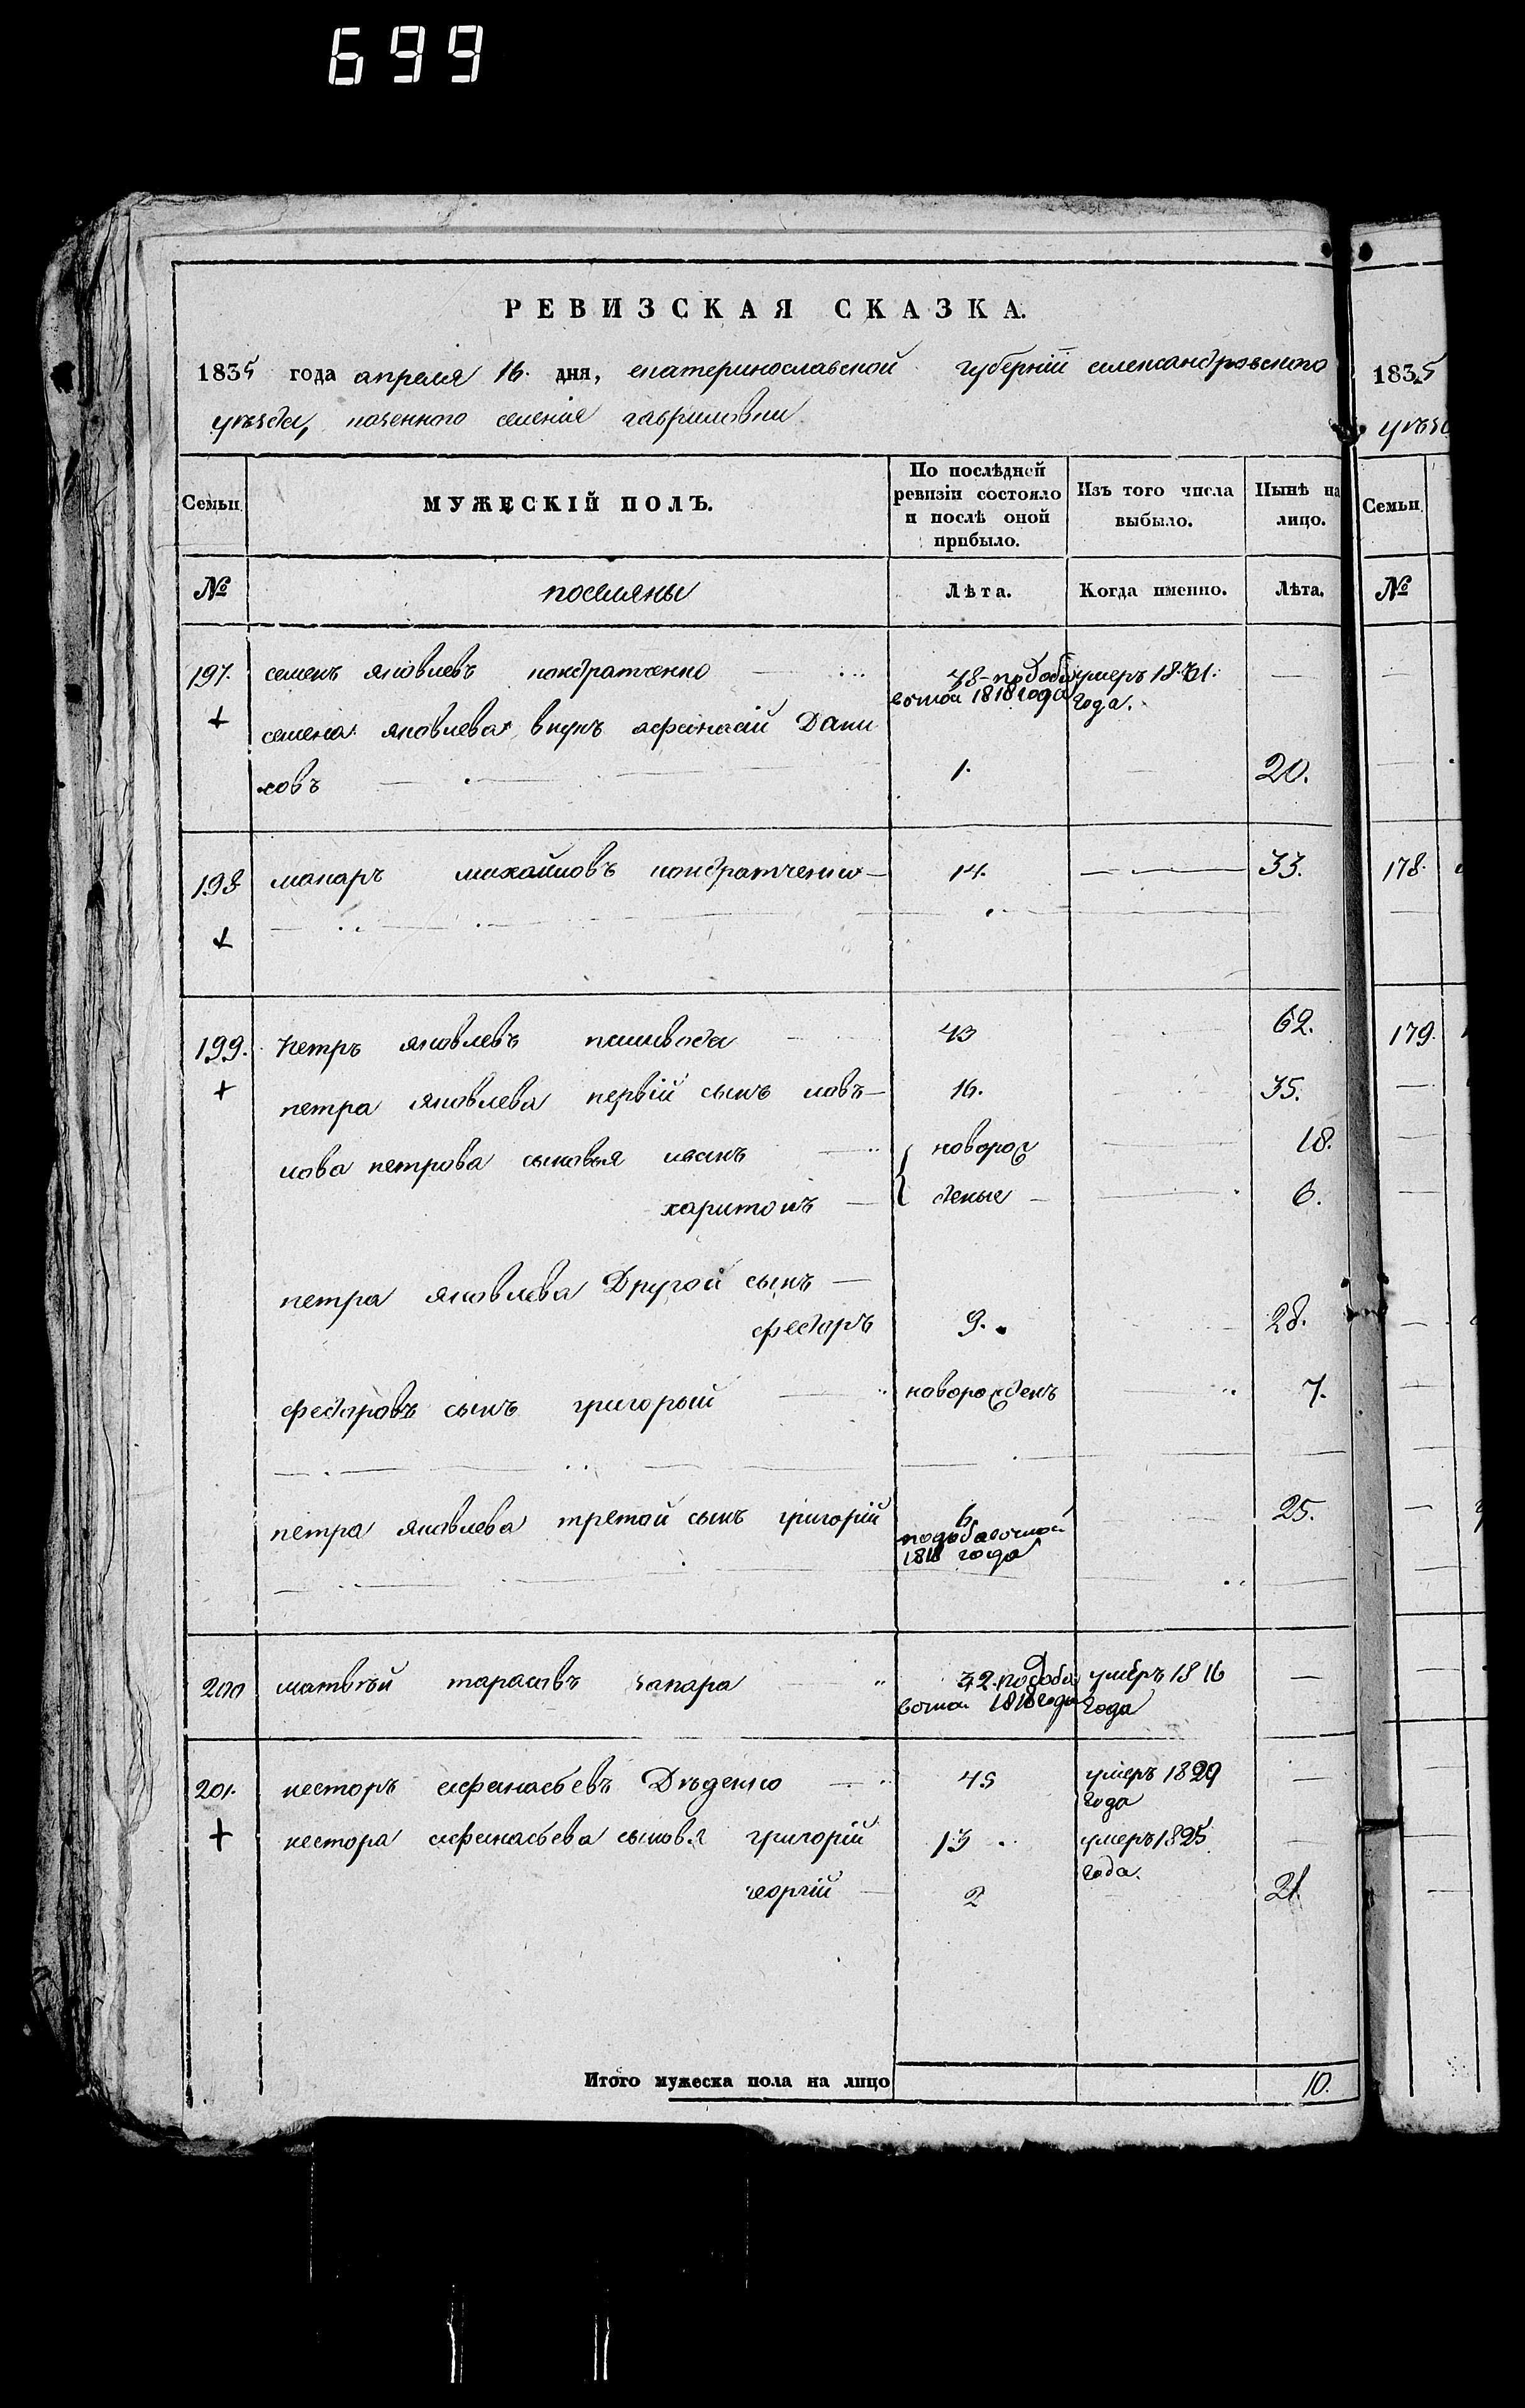 699
РЕВИЗСКАЯ СКАЗКА.
1835 года апреля 16. дня, екатеринославской губерніи александровского
уѣзда, казенного селенія гавриловки
Семьи
МУЖЕСКІЙ ПОЛЪ.
По послѣдней
ревизіи состояло
и послѣ оной
прибыло.
Изъ того числа
выбыло.
Нынѣ на
лицо.
№
поселяны
Лѣта.
Когда именно.
Лѣта.
197. семенъ яковлевъ кондратченко 78 - подоба умеръ 18
вочной 1818 года года.
семена яковлева внукъ афанасій Дани
ловъ 1. 20.
198 макаръ михайловъ кондратченко 14. 33.
199. петръ яковлевъ 43 62.
петра яковлева первій сынъ іовъ 16. 35.
иова петрова сыновья иванъ новорож 18.
харитонъ деные 6.
петра яковлева Другой сынъ
федоръ 9. 28.
федоровъ сынъ григорый новорожденъ 7.
петра яковлева третой сынъ григорій 6 25.
подобавочной
1818 года
200 матвѣй тарасовъ запара 32. подоба умеръ 1816
вочной 1818 года года
201. несторъ афанасьевъ Дѣденко 45 умеръ 1829
года
нестора афанасьева сыновя григорій 13 умеръ 1825
года.
георгій 2 21.
Итого мужеска пола на лицо 10.
1835
уѣзд
Семьи
№
178.
179.